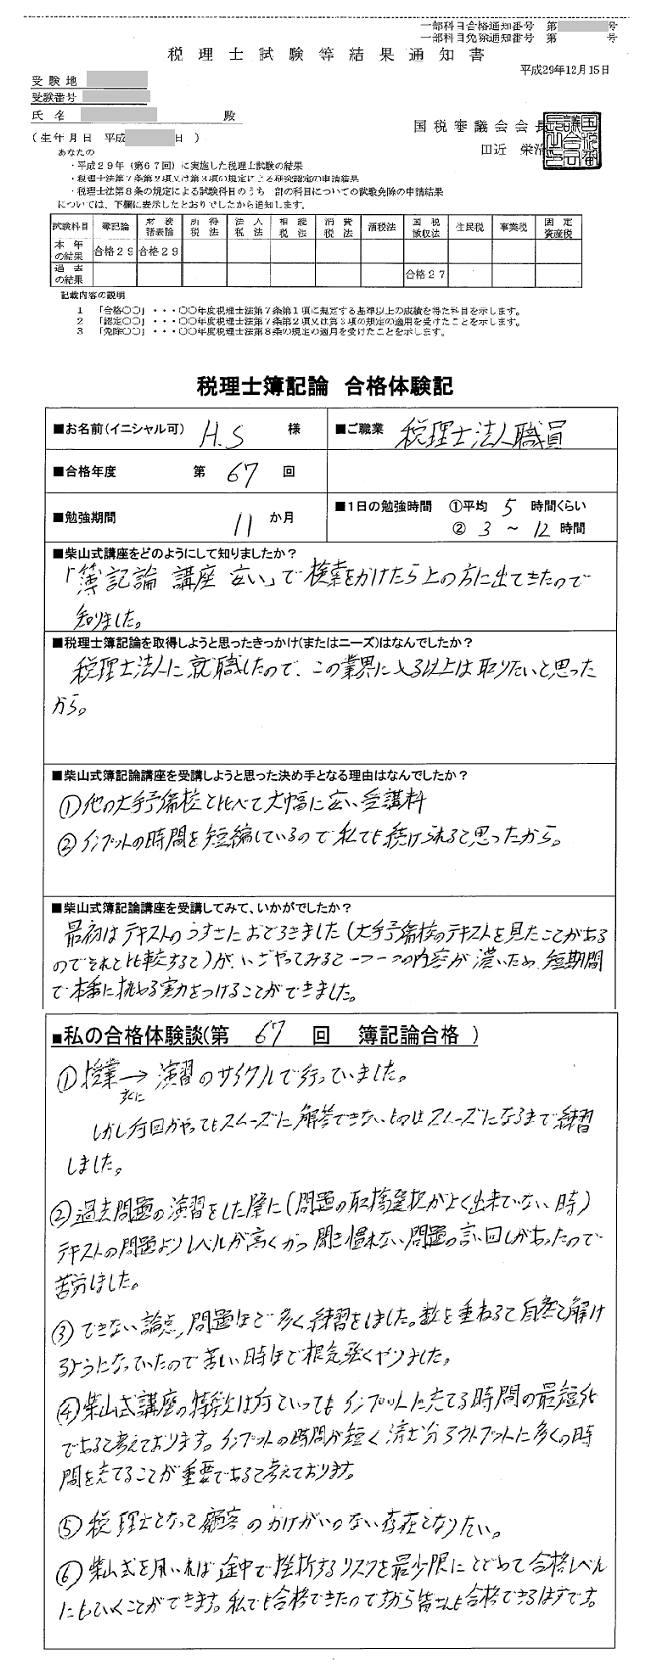 一部科目合格通知番号 第 号
一部科目免除通知番号 第 号
税理士試験等結果通知書
平成29年12月15日
受験地
受験番号
氏名 殿
(生年月日 平成 日)
国税審議会会長
田近 栄治
あなたの
・平成29年(第67回)に実施した税理士試験の結果
・税理士法第7条第2項又は第3項の規定による研究認定の申請結果
・税理士法第8条の規定による試験科目のうち一部の科目についての試験免除の申請結果
については、下欄に表示したとおりでしたから通知します。
試験科目 簿記論 財務諸表論 所得税法 法人税法 相続税法 消費税法 酒税法 国税徴収法 住民税 事業税 固定資産税
本年の結果 合格29 合格29
過去の結果 合格27
記載内容の説明
1 「合格○○」・・・○○年度税理士法第7条第1項に規定する基準以上の成績を得た科目を示します。
2 「認定○○」・・・○○年度税理士法第7条第2項又は第3項の規定の適用を受けたことを示します。
3 「免除○○」・・・○○年度税理士法第8条の規定の適用を受けたことを示します。
税理士簿記論 合格体験記
■お名前(イニシャル可) H.S 様 ■ご職業 税理士法人職員
■合格年度 第 67 回
■勉強期間 11 か月 ■1日の勉強時間 ①平均 5 時間くらい
② 3 ~ 12 時間
■柴山式講座をどのようにして知りましたか?
「簿記論 講座 安い」で検索をかけたら上の方に出てきたので
知りました。
■税理士簿記論を取得しようと思ったきっかけ(またはニーズ)はなんでしたか?
税理士法人に就職したので、この業界に入る以上は取りたいと思った
から。
■柴山式簿記論講座を受講しようと思った決め手となる理由はなんでしたか?
①他の大手予備校と比べて大幅に安い受講料
②インプットの時間を短縮しているので私でも続けられると思ったから。
■柴山式簿記論講座を受講してみて、いかがでしたか?
最初はテキストのうすさにおどろきました(大手予備校のテキストを見たことがある
のでそれと比較すると)が、いざやってみると一つ一つの内容が濃いため、短期間
で本番に挑める実力をつけることができました。
■私の合格体験談(第 67 回 簿記論合格)
①授業→演習のサイクルで行っていました。
すぐに
しかし何回かやってもスムーズに解答できないものはスムーズになるまで練習
しました。
②過去問題の演習をした際に(問題の取捨選択がよく出来ていない時)
テキストの問題よりレベルが高くかつ聞き慣れない問題の言い回しがあったので
苦労しました。
③できない論点、問題ほど多く練習をしました。数を重ねると自然と解け
るようになっていたので苦しい時ほど根気強くやりました。
④柴山式講座の特徴は何といってもインプットに充てる時間の最短化
であると考えております。インプットの時間が短く済む分アウトプットに多くの時
間を充てることが重要であると考えております。
⑤税理士となって顧客のかけがいのない存在となりたい。
⑥柴山式を用いれば途中で挫折するリスクを最少限にとどめて合格レベル
にもっていくことができます。私でも合格できたのですから皆さんも合格できるはずです。